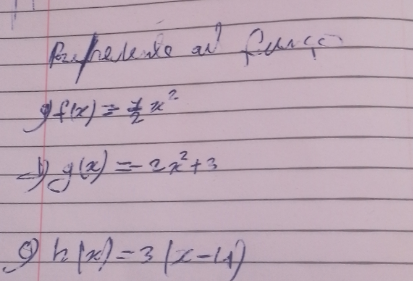 Represente as funço
a) f(x) = 1/2 x²
b) g(x) = -2x² + 3
c) h(x) = 3(x-4)